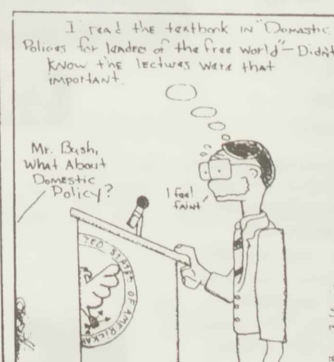 I read the textbook in "Domestic
Policies for leaders of the free world" – Didn't
know the lectures were that
important.
Mr. Bush,
What About
Domestic
Policy?
I feel
faint
TED STATES OF AMERICKA